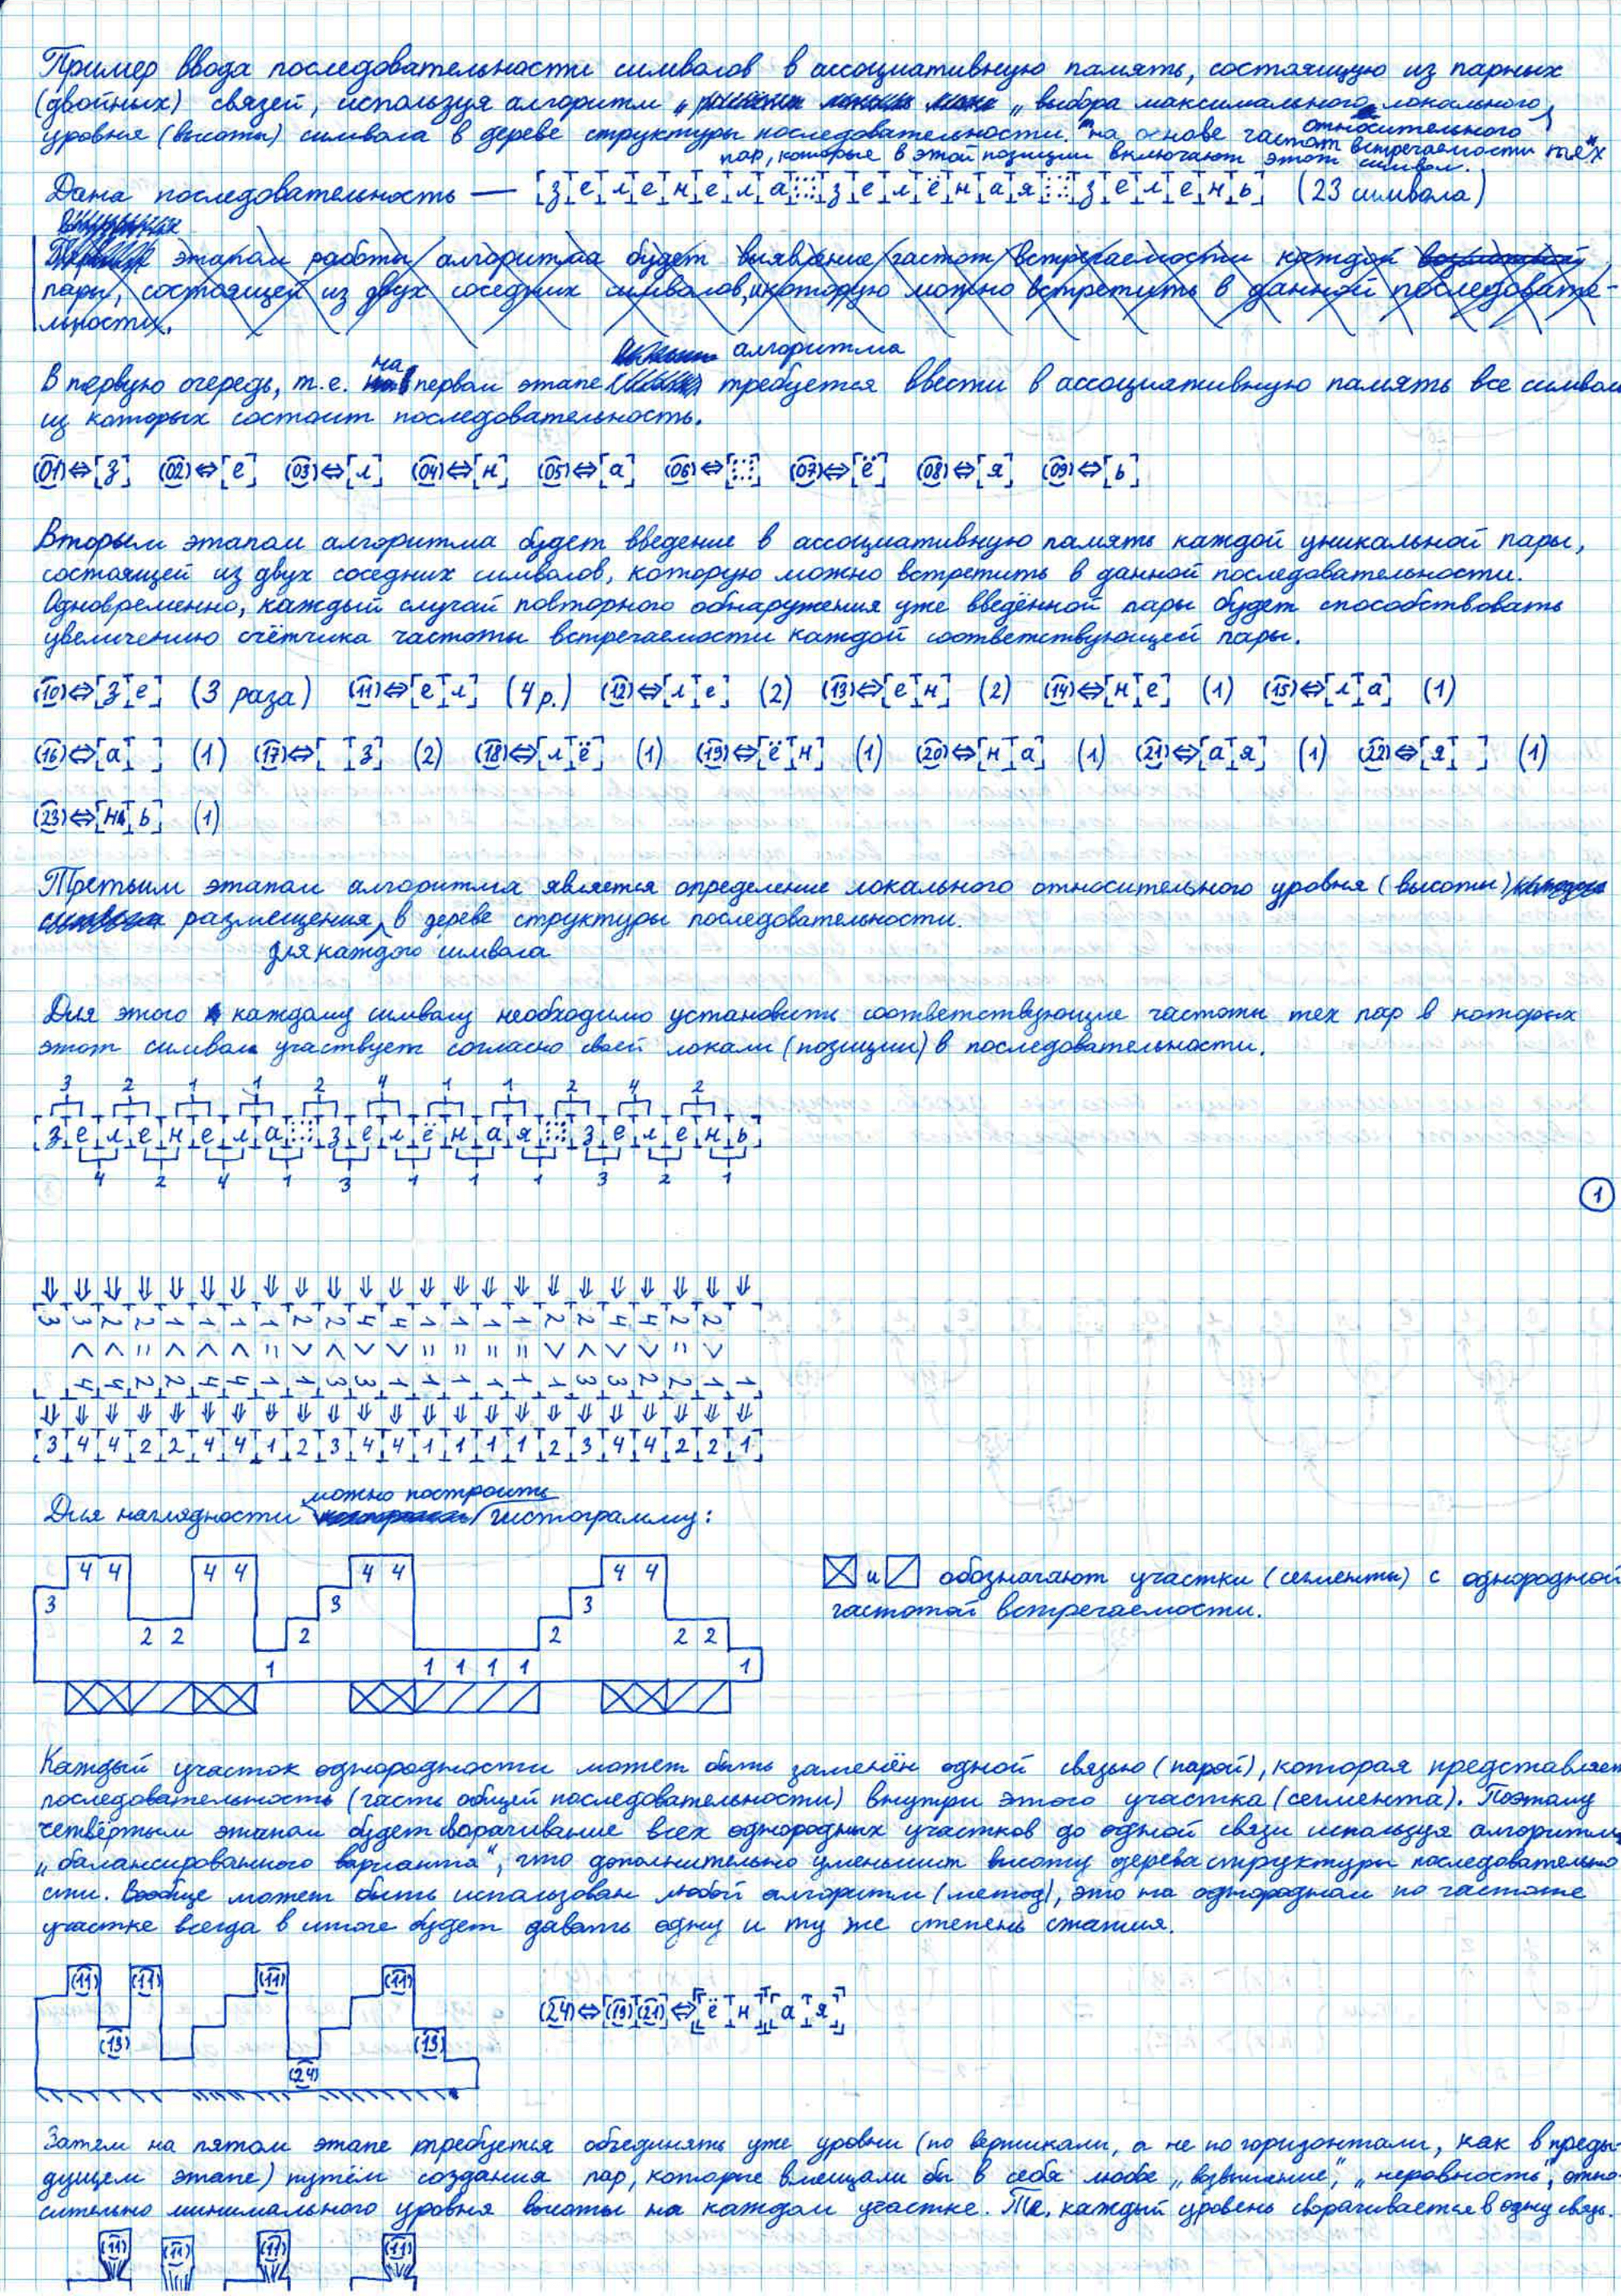 Пример ввода последовательности символов в ассоциативную память, состоящую из парных
(двойных) связей, используя алгоритм „ выбора максимального локального
относительного
уровня (высоты) символа в дереве структуры последовательности." на основе частот встречаемости тех
пар, которые в этой позиции включают этот символ.
Дана последовательность — [з][е][л][е][н][е][л][а][::][з][е][л][ё][н][а][я][::][з][е][л][е][н][ь] (23 символа)
этапом работы алгоритма будет выявление частот встречаемости каждой
пары, состоящей из двух соседних символов, которую можно встретить в данной последовате-
льности.
алгоритма
на
В первую очередь, т.е. первом этапе требуется ввести в ассоциативную память все символ
из которых состоит последовательность.
(01)⇔[з] (02)⇔[е] (03)⇔[л] (04)⇔[н] (05)⇔[а] (06)⇔[::] (07)⇔[ё] (08)⇔[я] (09)⇔[ь]
Вторым этапом алгоритма будет введение в ассоциативную память каждой уникальной пары,
состоящей из двух соседних символов, которую можно встретить в данной последовательности.
Одновременно, каждый случай повторного обнаружения уже введённой пары будет способствовать
увеличению счётчика частоты встречаемости каждой соответствующей пары.
(10)⇔[з][е] (3 раза) (11)⇔[е][л] (4 р.) (12)⇔[л][е] (2) (13)⇔[е][н] (2) (14)⇔[н][е] (1) (15)⇔[л][а] (1)
(16)⇔[а][ ] (1) (17)⇔[ ][з] (2) (18)⇔[л][ё] (1) (19)⇔[ё][н] (1) (20)⇔[н][а] (1) (21)⇔[а][я] (1) (22)⇔[я][ ] (1)
(23)⇔[н][ь] (1)
Третьим этапом алгоритма является определение локального относительного уровня (высоты)
размещения в дереве структуры последовательности.
для каждого символа
Для этого каждому символу необходимо установить соответствующие частоты тех пар в которых
этот символ участвует согласно своей локали (позиции) в последовательности.
3 2 1 1 2 4 1 1 2 4 2
[з][е][л][е][н][е][л][а][::][з][е][л][ё][н][а][я][::][з][е][л][е][н][ь]
4 2 4 1 3 1 1 1 3 2 1
1
⇓ ⇓ ⇓ ⇓ ⇓ ⇓ ⇓ ⇓ ⇓ ⇓ ⇓ ⇓ ⇓ ⇓ ⇓ ⇓ ⇓ ⇓ ⇓ ⇓ ⇓ ⇓ ⇓
3 3 2 2 1 1 1 1 2 2 4 4 1 1 1 1 2 2 4 4 2 2
< < = < < < = > < > > = = = = > < > > = >
4 4 2 2 4 4 1 1 3 3 1 1 1 1 1 1 3 3 2 2 1 1
⇓ ⇓ ⇓ ⇓ ⇓ ⇓ ⇓ ⇓ ⇓ ⇓ ⇓ ⇓ ⇓ ⇓ ⇓ ⇓ ⇓ ⇓ ⇓ ⇓ ⇓ ⇓ ⇓
[3][4][4][2][2][4][4][1][2][3][4][4][1][1][1][1][2][3][4][4][2][2][1]
можно построить
Для наглядности гистограмму:
4 4 4 4 4 4 4 4
и обозначают участки (сегменты) с однородной
3 3 3
частотой встречаемости.
2 2 2 2 2 2
1 1 1 1 1 1
Каждый участок однородности может быть заменён одной связью (парой), которая представляет
последовательность (часть общей последовательности) внутри этого участка (сегмента). Поэтому
четвёртым этапом будет сворачивание всех однородных участков до одной связи используя алгоритм
„балансированного варианта", что дополнительно уменьшит высоту дерева структуры последовательно
сти. Вообще может быть использован любой алгоритм (метод), это на однородном по частоте
участке всегда в итоге будет давать одну и ту же степень сжатия.
(11) (11) (11) (11)
(24)⇔[(19)][(21)]⇔[[ё][н]][[а][я]]
(13) (13)
(24)
Затем на пятом этапе требуется объединять уже уровни (по вертикали, а не по горизонтали, как в преды-
дущем этапе) путём создания пар, которые вмещали бы в себя любое „возвышение", „неровность", отно-
сительно минимального уровня высоты на каждом участке. Т.е. каждый уровень сворачивается в одну связь.
(11) (11) (11) (11)